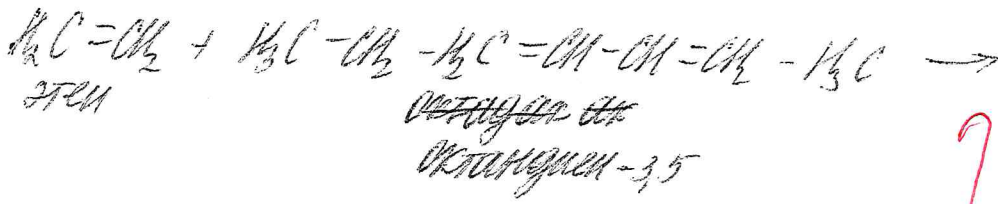 H₂C=CH₂ + H₃C-CH₂-H₂C=CH-CH=CH₂-H₃C →
этен
октандиен-3,5
?